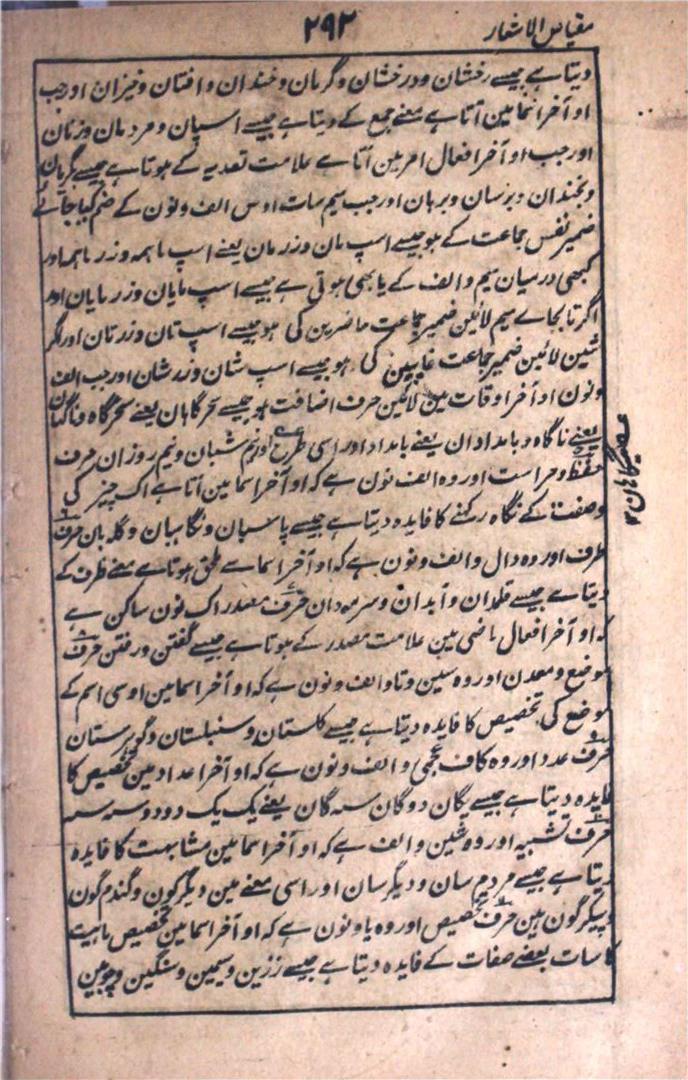 مقیاس الاشعار
۲۹۲
دیتا ہے جیسے رخشان و درخشان و گریان و خندان و افتان و خیزان اور جب
او آخر اسما مین آتا ہے معنے جمع کے دیتا ہے جیسے اسپان و مردمان و زنان
اور جب او آخر افعال امر مین آتا ہے علامت تعدیہ کے ہوتا ہے جیسے گریان
و بخندان و برسان و برہان اور جب میم سات اوس الف و نون کے ضم کیا جائے
ضمیر نفس جماعت کے ہو جیسے اسپ مان و زرمان یعنے اسپ ماہمہ و زر ماہمہ اور
کبھی درمیان میم و الف کے یا بھی ہوتی ہے جیسے اسپ مایان و زر مایان اور
اگر تا بجاے میم لائین ضمیر جماعت حاضرین کی ہو جیسے اسپ تان و زرتان اور اگر
شین لائین ضمیر جماعت غایبین کی ہو جیسے اسپ شان و زرشان اور جب الف
و نون او آخر اوقات مین لائین حرف اضافت ہو جیسے سحرگاہان یعنے سحرگاہ و ناگہان
یعنے ناگاہ و بامدادان یعنے بامداد اور اسی طرح اور نیم شبان و نیم روزان حرف
حفظ و حراست اور وہ الف نون ہے کہ او آخر اسما مین آتا ہے اک چیز کی
وصفت کے نگاہ رکہنے کا فایدہ دیتا ہے جیسے پاسبان و نگاہبان و گلہ بان حرف
ظرف اور وہ دال و الف و نون ہے کہ او آخر اسما سے ملحق ہوتا ہے معنے ظرف کے
دیتا ہے جیسے قلمدان و آبدان و سرمہ دان حرف مصدر اک نون ساکن ہے
کہ او آخر افعال ماضی مین علامت مصدر کے ہوتا ہے جیسے گفتن و رفتن حرف
موضع و معدن اور وہ سین و تا و الف و نون ہے کہ او آخر اسما مین اوسی اسم کے
موضع کی تخصیص کا فایدہ دیتا ہے جیسے گلستان و سنبلستان و گورستان
حرف عدد اور وہ کاف عجمی و الف و نون ہے کہ او آخر اعداد مین تخصیص کا
فایدہ دیتا ہے جیسے یگان دوگان سہ گان یعنے یک یک دو دو سہ سہ
حرف تشبیہ اور وہ سین و الف ہے کہ او آخر اسما مین مشابہت کا فایدہ
دیتا ہے جیسے مردم سان و دیگر سان اور اسی معنے مین دیگرگون و گندم گون
و پیکرگون ہین حرف تخصیص اور وہ یا و نون ہے کہ او آخر اسما مین تخصیص ماہیت
کا سات بعضے صفات کے فایدہ دیتا ہے جیسے زرین و سیمین و سنگین و چوبین